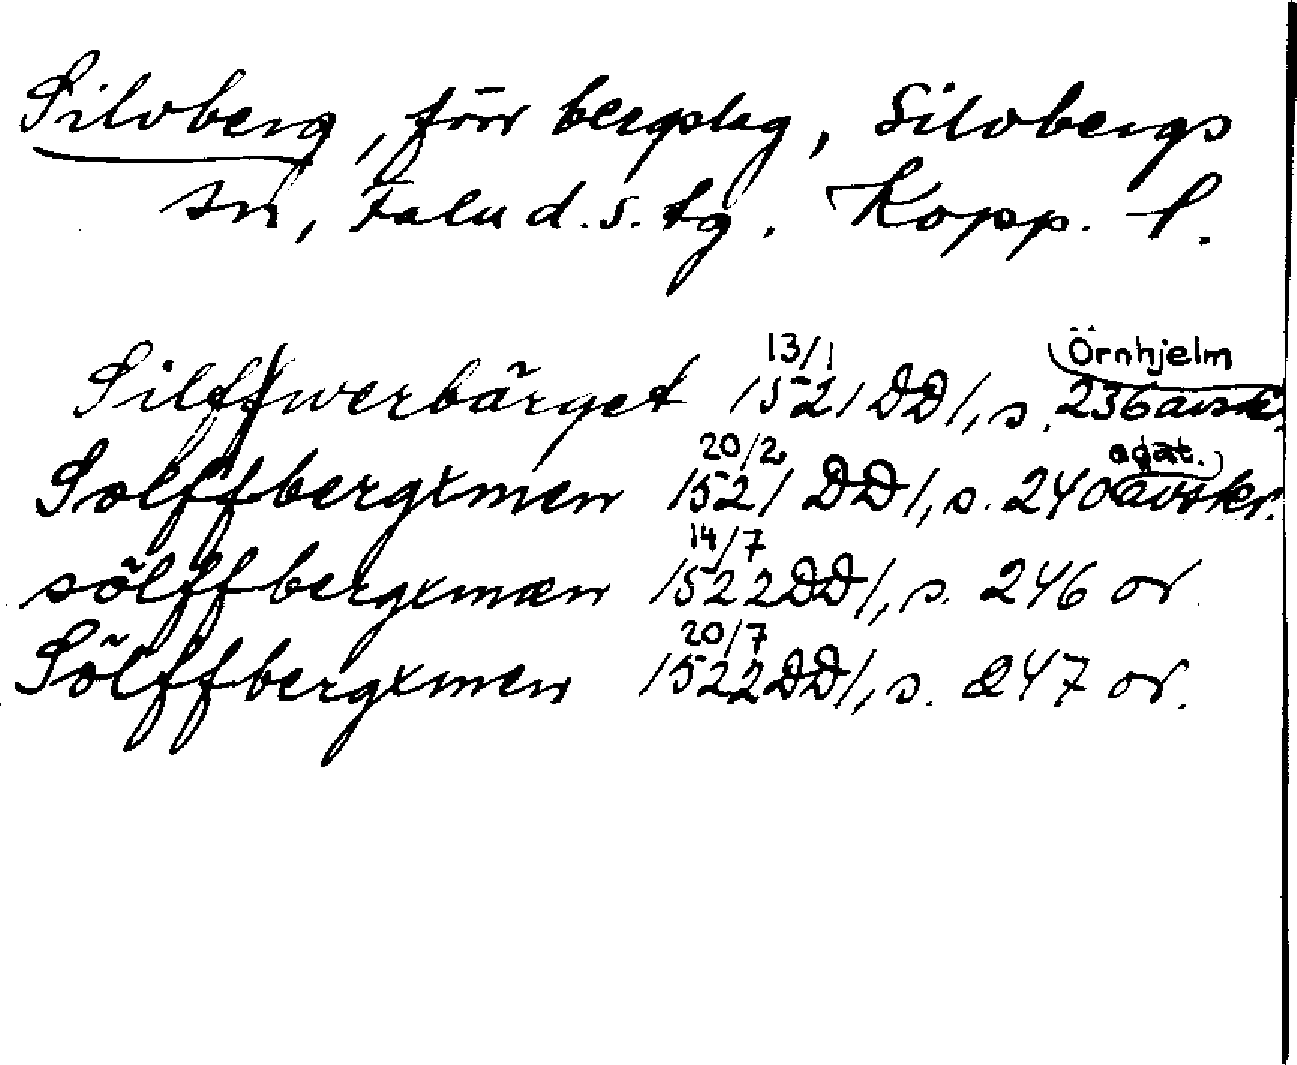 Silvberg, förr bergslag, Silvbergs
sn, Falu d.s. tg. Kopp. l.
Silffwerbärget 13/1 1521 DD 1, s. 236 avskr. Örnhjelm
Solffbergxmen 20/2 1521 DD 1, s. 240 odat. avskr.
sölffbergxmæn 14/7 1522 DD 1, s. 246 or
Sölffbergxmen 20/7 1522 DD 1, s. 247 or.